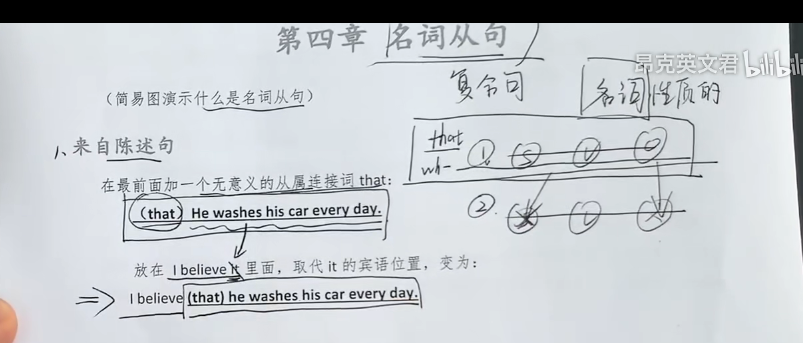 第四章 名词从句
昂克英文君 bilibili
复合句
名词 性质的
（简易图演示什么是名词从句）
that
wh-
① S V O
②
1、来自陈述句
在最前面加一个无意义的从属连接词 that:
(that) He washes his car every day.
放在 I believe it 里面，取代 it 的宾语位置，变为：
⇒ I believe (that) he washes his car every day.